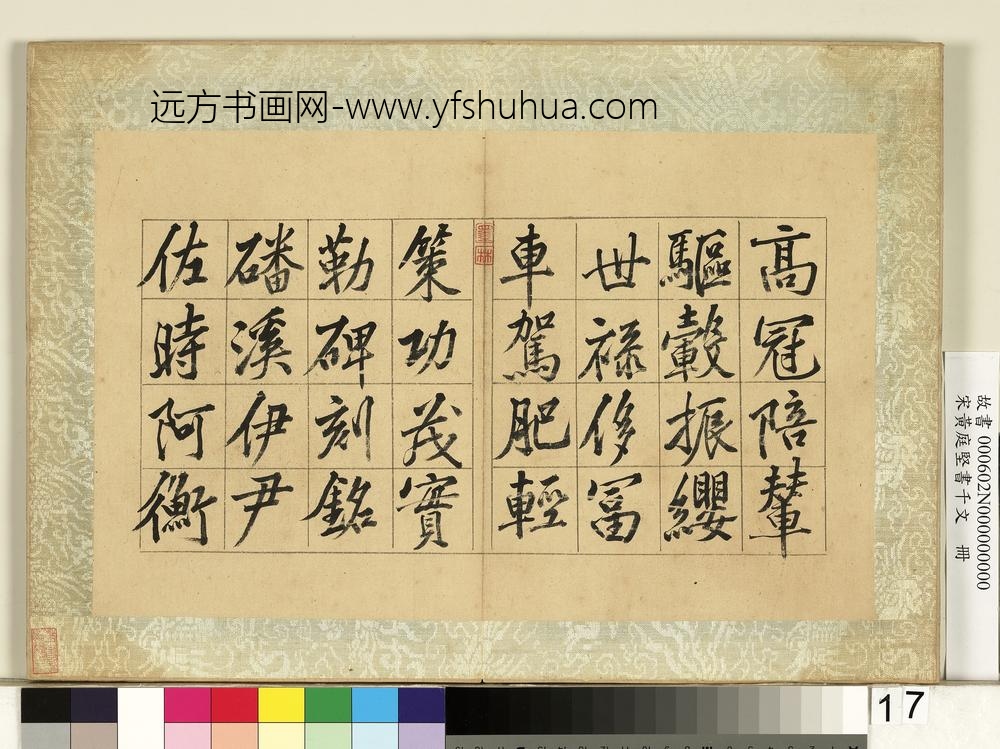 远方书画网-www.yfshuhua.com
高冠陪輦
驅轂振纓
世祿侈冨
車駕肥輕
策功茂實
勒碑刻銘
磻溪伊尹
佐時阿衡
故書 000602N000000000
宋黃庭堅書千文 冊
17